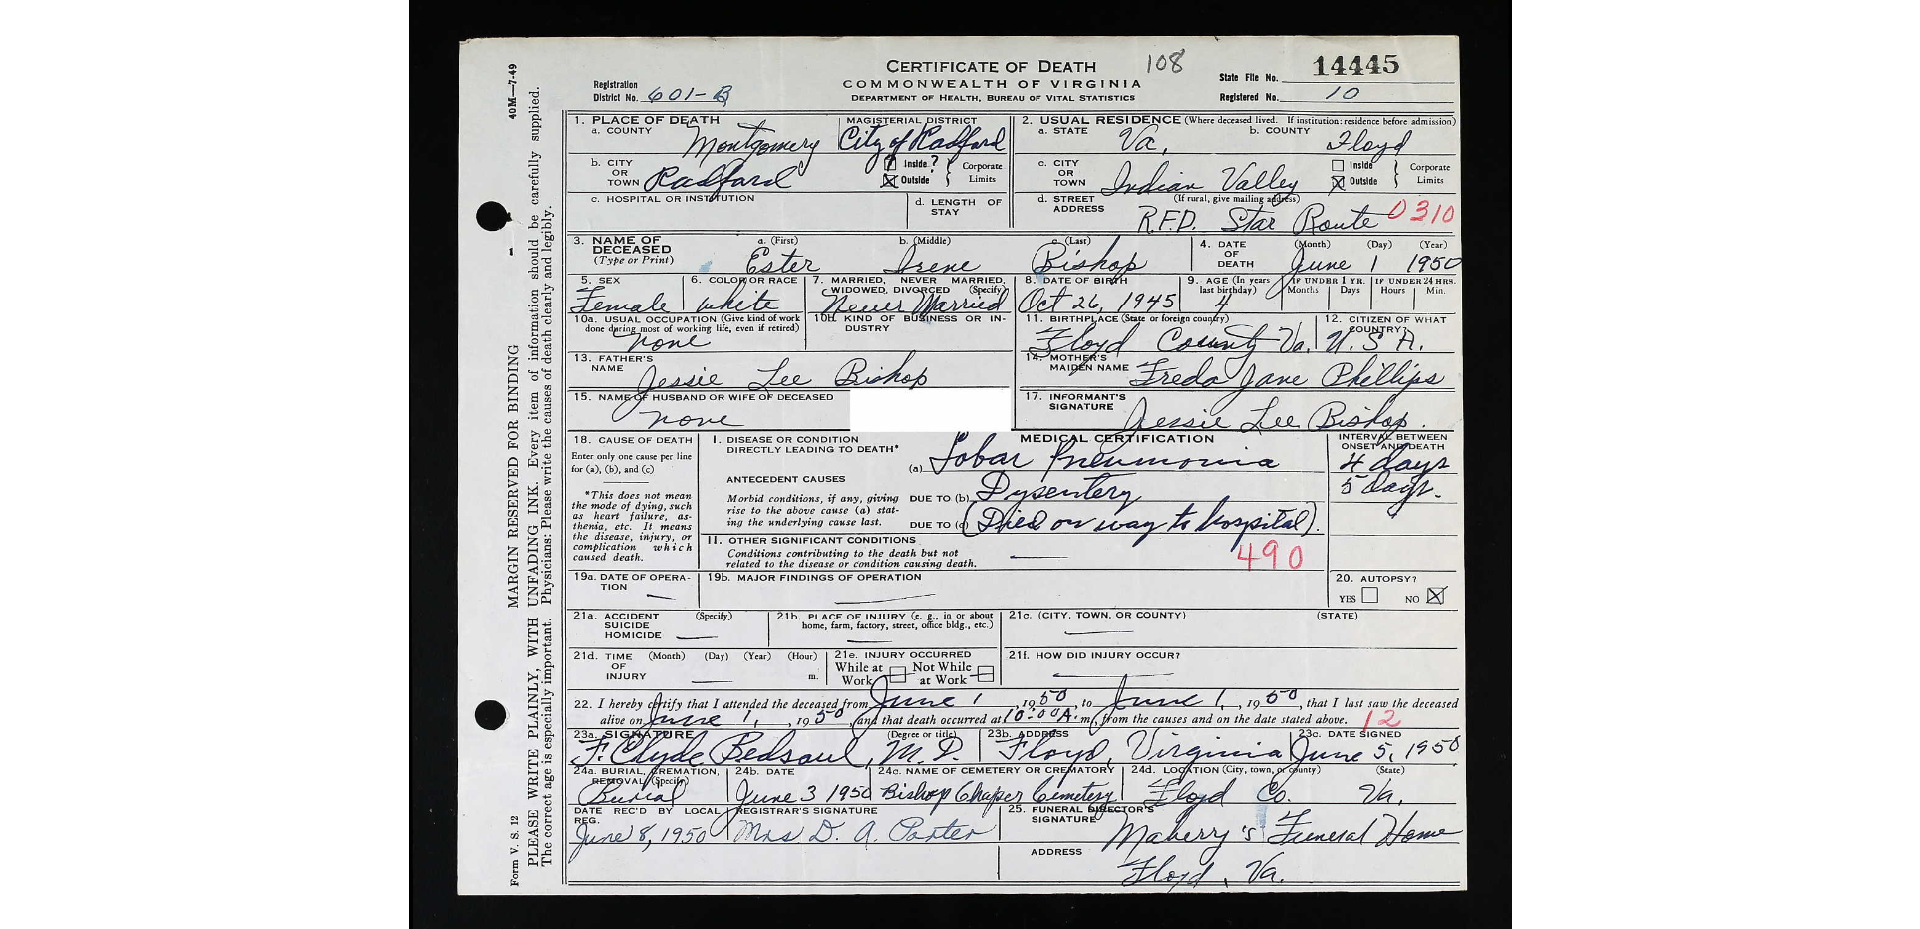 CERTIFICATE OF DEATH 108
COMMONWEALTH OF VIRGINIA
DEPARTMENT OF HEALTH, BUREAU OF VITAL STATISTICS
Registration District No. 601-B
State File No. 14445
Registered No. 10
40M—7-49
MARGIN RESERVED FOR BINDING
PLEASE WRITE PLAINLY, WITH UNFADING INK. Every item of information should be carefully supplied.
The correct age is especially important. Physicians: Please write the causes of death clearly and legibly.
Form V. S. 12
1. PLACE OF DEATH
a. COUNTY Montgomery
MAGISTERIAL DISTRICT City of Radford
b. CITY OR TOWN Radford
Inside ? Outside Corporate Limits
c. HOSPITAL OR INSTITUTION
d. LENGTH OF STAY
2. USUAL RESIDENCE (Where deceased lived. If institution: residence before admission)
a. STATE Va,
b. COUNTY Floyd
c. CITY OR TOWN Indian Valley
Inside Outside Corporate Limits
d. STREET ADDRESS (If rural, give mailing address)
R.F.D. Star Route 0310
3. NAME OF DECEASED (Type or Print)
a. (First) Ester
b. (Middle) Irene
c. (Last) Bishop
4. DATE OF DEATH (Month) (Day) (Year)
June 1 1950
5. SEX Female
6. COLOR OR RACE white
7. MARRIED, NEVER MARRIED, WIDOWED, DIVORCED (Specify) Never Married
8. DATE OF BIRTH Oct 26, 1945
9. AGE (In years last birthday) 4
IF UNDER 1 YR. Months Days
IF UNDER 24 HRS. Hours Min.
10a. USUAL OCCUPATION (Give kind of work done during most of working life, even if retired) none
10b. KIND OF BUSINESS OR INDUSTRY
11. BIRTHPLACE (State or foreign country) Floyd County Va.
12. CITIZEN OF WHAT COUNTRY? U.S.A.
13. FATHER'S NAME Jessie Lee Bishop
14. MOTHER'S MAIDEN NAME Freda Jane Phillips
15. NAME OF HUSBAND OR WIFE OF DECEASED none
17. INFORMANT'S SIGNATURE Jessie Lee Bishop.
18. CAUSE OF DEATH
Enter only one cause per line for (a), (b), and (c)
*This does not mean the mode of dying, such as heart failure, asthenia, etc. It means the disease, injury, or complication which caused death.
MEDICAL CERTIFICATION
INTERVAL BETWEEN ONSET AND DEATH
I. DISEASE OR CONDITION DIRECTLY LEADING TO DEATH*
(a) Lobar Pneumonia 4 days
ANTECEDENT CAUSES
Morbid conditions, if any, giving rise to the above cause (a) stating the underlying cause last.
DUE TO (b) Dysentery 5 days.
DUE TO (c) (Died on way to hospital).
II. OTHER SIGNIFICANT CONDITIONS
Conditions contributing to the death but not related to the disease or condition causing death.
490
19a. DATE OF OPERATION
19b. MAJOR FINDINGS OF OPERATION
20. AUTOPSY?
YES NO
21a. ACCIDENT SUICIDE HOMICIDE (Specify)
21b. PLACE OF INJURY (e. g., in or about home, farm, factory, street, office bldg., etc.)
21c. (CITY, TOWN, OR COUNTY) (STATE)
21d. TIME OF INJURY (Month) (Day) (Year) (Hour) m.
21e. INJURY OCCURRED
While at Work Not While at Work
21f. HOW DID INJURY OCCUR?
22. I hereby certify that I attended the deceased from June 1, 1950, to June 1, 1950, that I last saw the deceased
alive on June 1, 1950, and that death occurred at 10:00A.m., from the causes and on the date stated above. 12
23a. SIGNATURE (Degree or title) F. Clyde Bedsaul, M.D.
23b. ADDRESS Floyd, Virginia
23c. DATE SIGNED June 5, 1950
24a. BURIAL, CREMATION, REMOVAL (Specify) Burial
24b. DATE June 3 1950
24c. NAME OF CEMETERY OR CREMATORY Bishop Chapel Cemetery
24d. LOCATION (City, town, or county) (State) Floyd Co. Va.
DATE REC'D BY LOCAL REG. June 8, 1950
REGISTRAR'S SIGNATURE Mrs D. A. Porter
25. FUNERAL DIRECTOR'S SIGNATURE Maberry's Funeral Home
ADDRESS Floyd, Va.